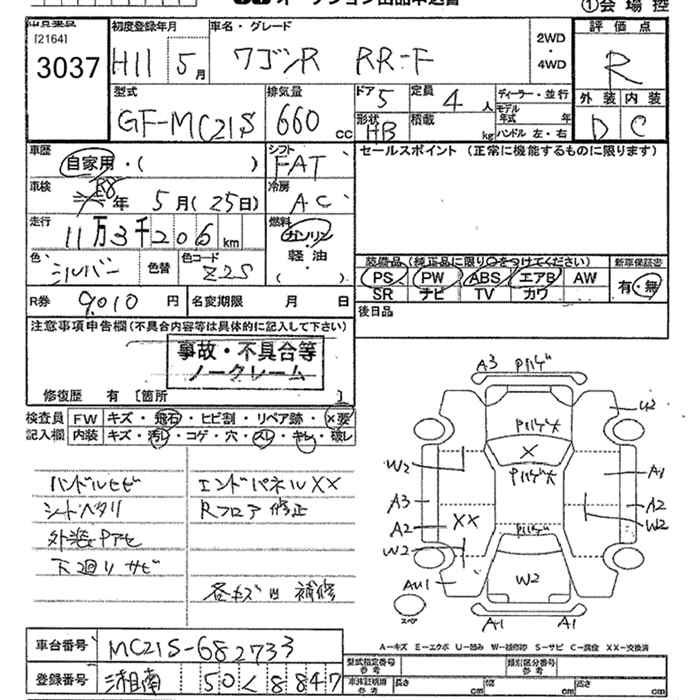 オークション出品申込書
①会場控
[2164]
3037
初度登録年月
H11 5月
車名・グレード
ワゴンR RR-F
2WD
・
4WD
評価点
R
外装 内装
D C
型式
GF-MC21S
排気量
660 cc
ドア
5
定員
4人
形状
HB
積載
kg
ディーラー・並行
モデル年式 年
ハンドル 左・右
車歴
自家用・( )
シフト
FAT
セールスポイント (正常に機能するものに限ります)
車検
年 5月(25日)
冷房
AC
走行
11万3千206km
燃料
ガソリン
・
軽油
・
( )
色
シルバー
色替
色コード
Z2S
装備品(純正品に限り○をつけてください)
新車保証書
PS PW ABS エアB AW
SR ナビ TV カワ
有・無
R券
9,010円
名変期限 月 日
後日品
注意事項申告欄(不具合内容等は具体的に記入して下さい)
事故・不具合等
ノークレーム
修復歴 有[箇所 ]
検査員
記入欄
FW キズ・飛石・ヒビ割・リペア跡・×要
内装 キズ・汚レ・コゲ・穴・スレ・キレ・破レ
ハンドルセビ
シートヘタリ
外装Pアセ
下廻りサビ
エンドパネルXX
Rフロア修正
各キズ凹補修
A3 Pハゲ
U2
Pハゲ大
X
Pハゲ大
W2
A1
A3
A2
A2
XX
W2
W2
Pハゲ大
W2
AU1
スペア
A1
A1
A-キズ E-エクボ U-凹み W-補修跡 S-サビ C-腐食 XX-交換済
車台番号
MC21S-682733
登録番号
湘南 50 く 8847
型式指定番号
参考
類別区分番号
参考
車検証明書
参考
長さ
cm
幅
cm
高さ
cm